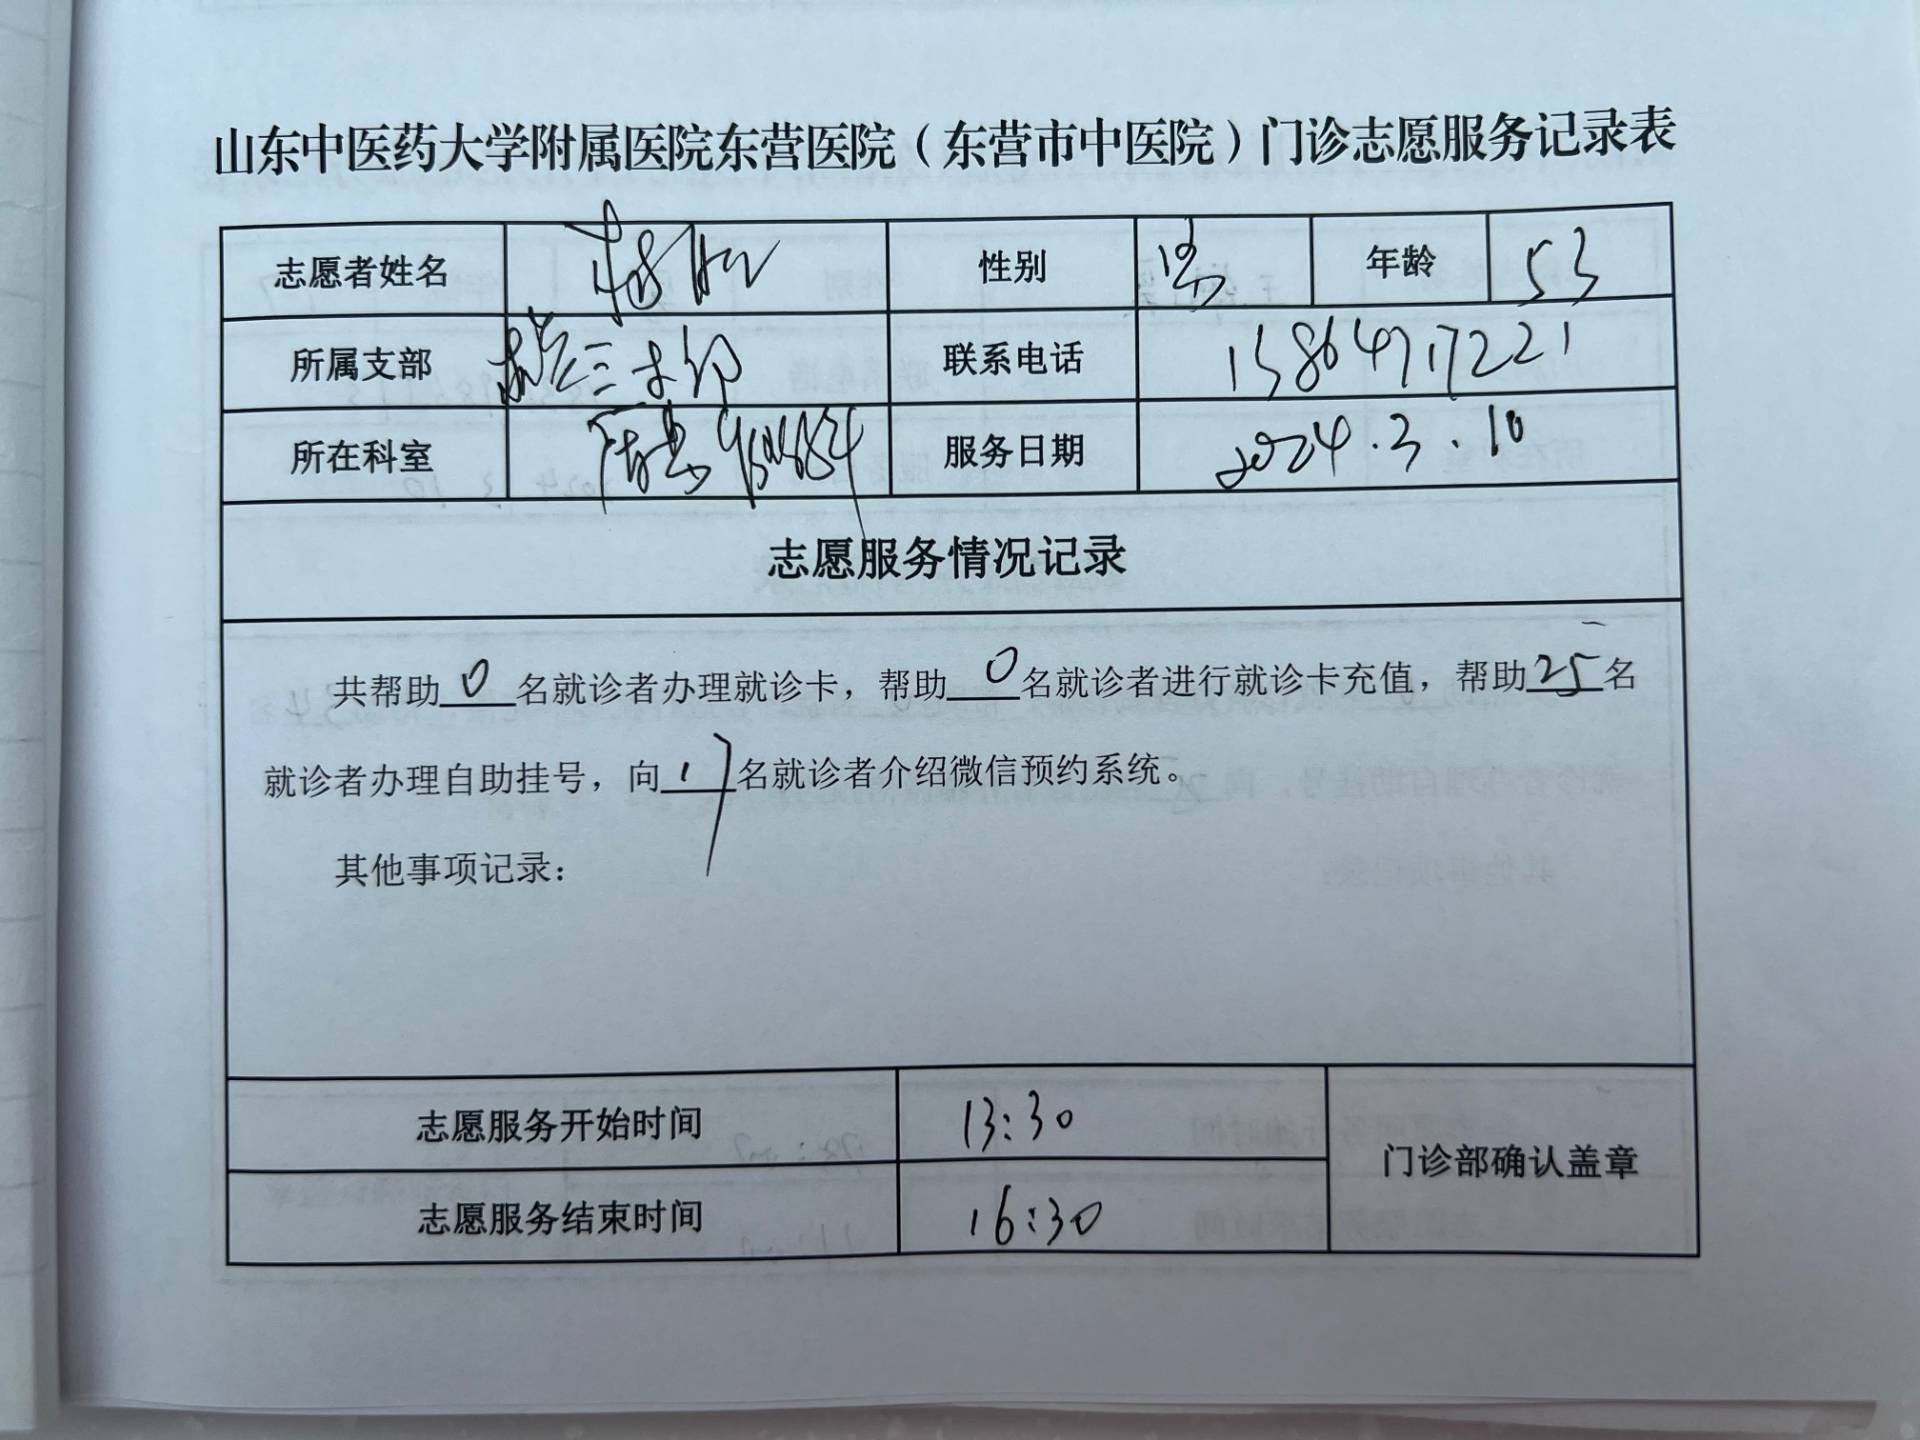 山东中医药大学附属医院东营医院（东营市中医院）门诊志愿服务记录表
志愿者姓名 性别 男 年龄 53
所属支部 三支部 联系电话 15864717221
所在科室 服务日期 2024.3.10
志愿服务情况记录
共帮助0名就诊者办理就诊卡，帮助0名就诊者进行就诊卡充值，帮助25名
就诊者办理自助挂号，向17名就诊者介绍微信预约系统。
其他事项记录：
志愿服务开始时间 13:30
门诊部确认盖章
志愿服务结束时间 16:30